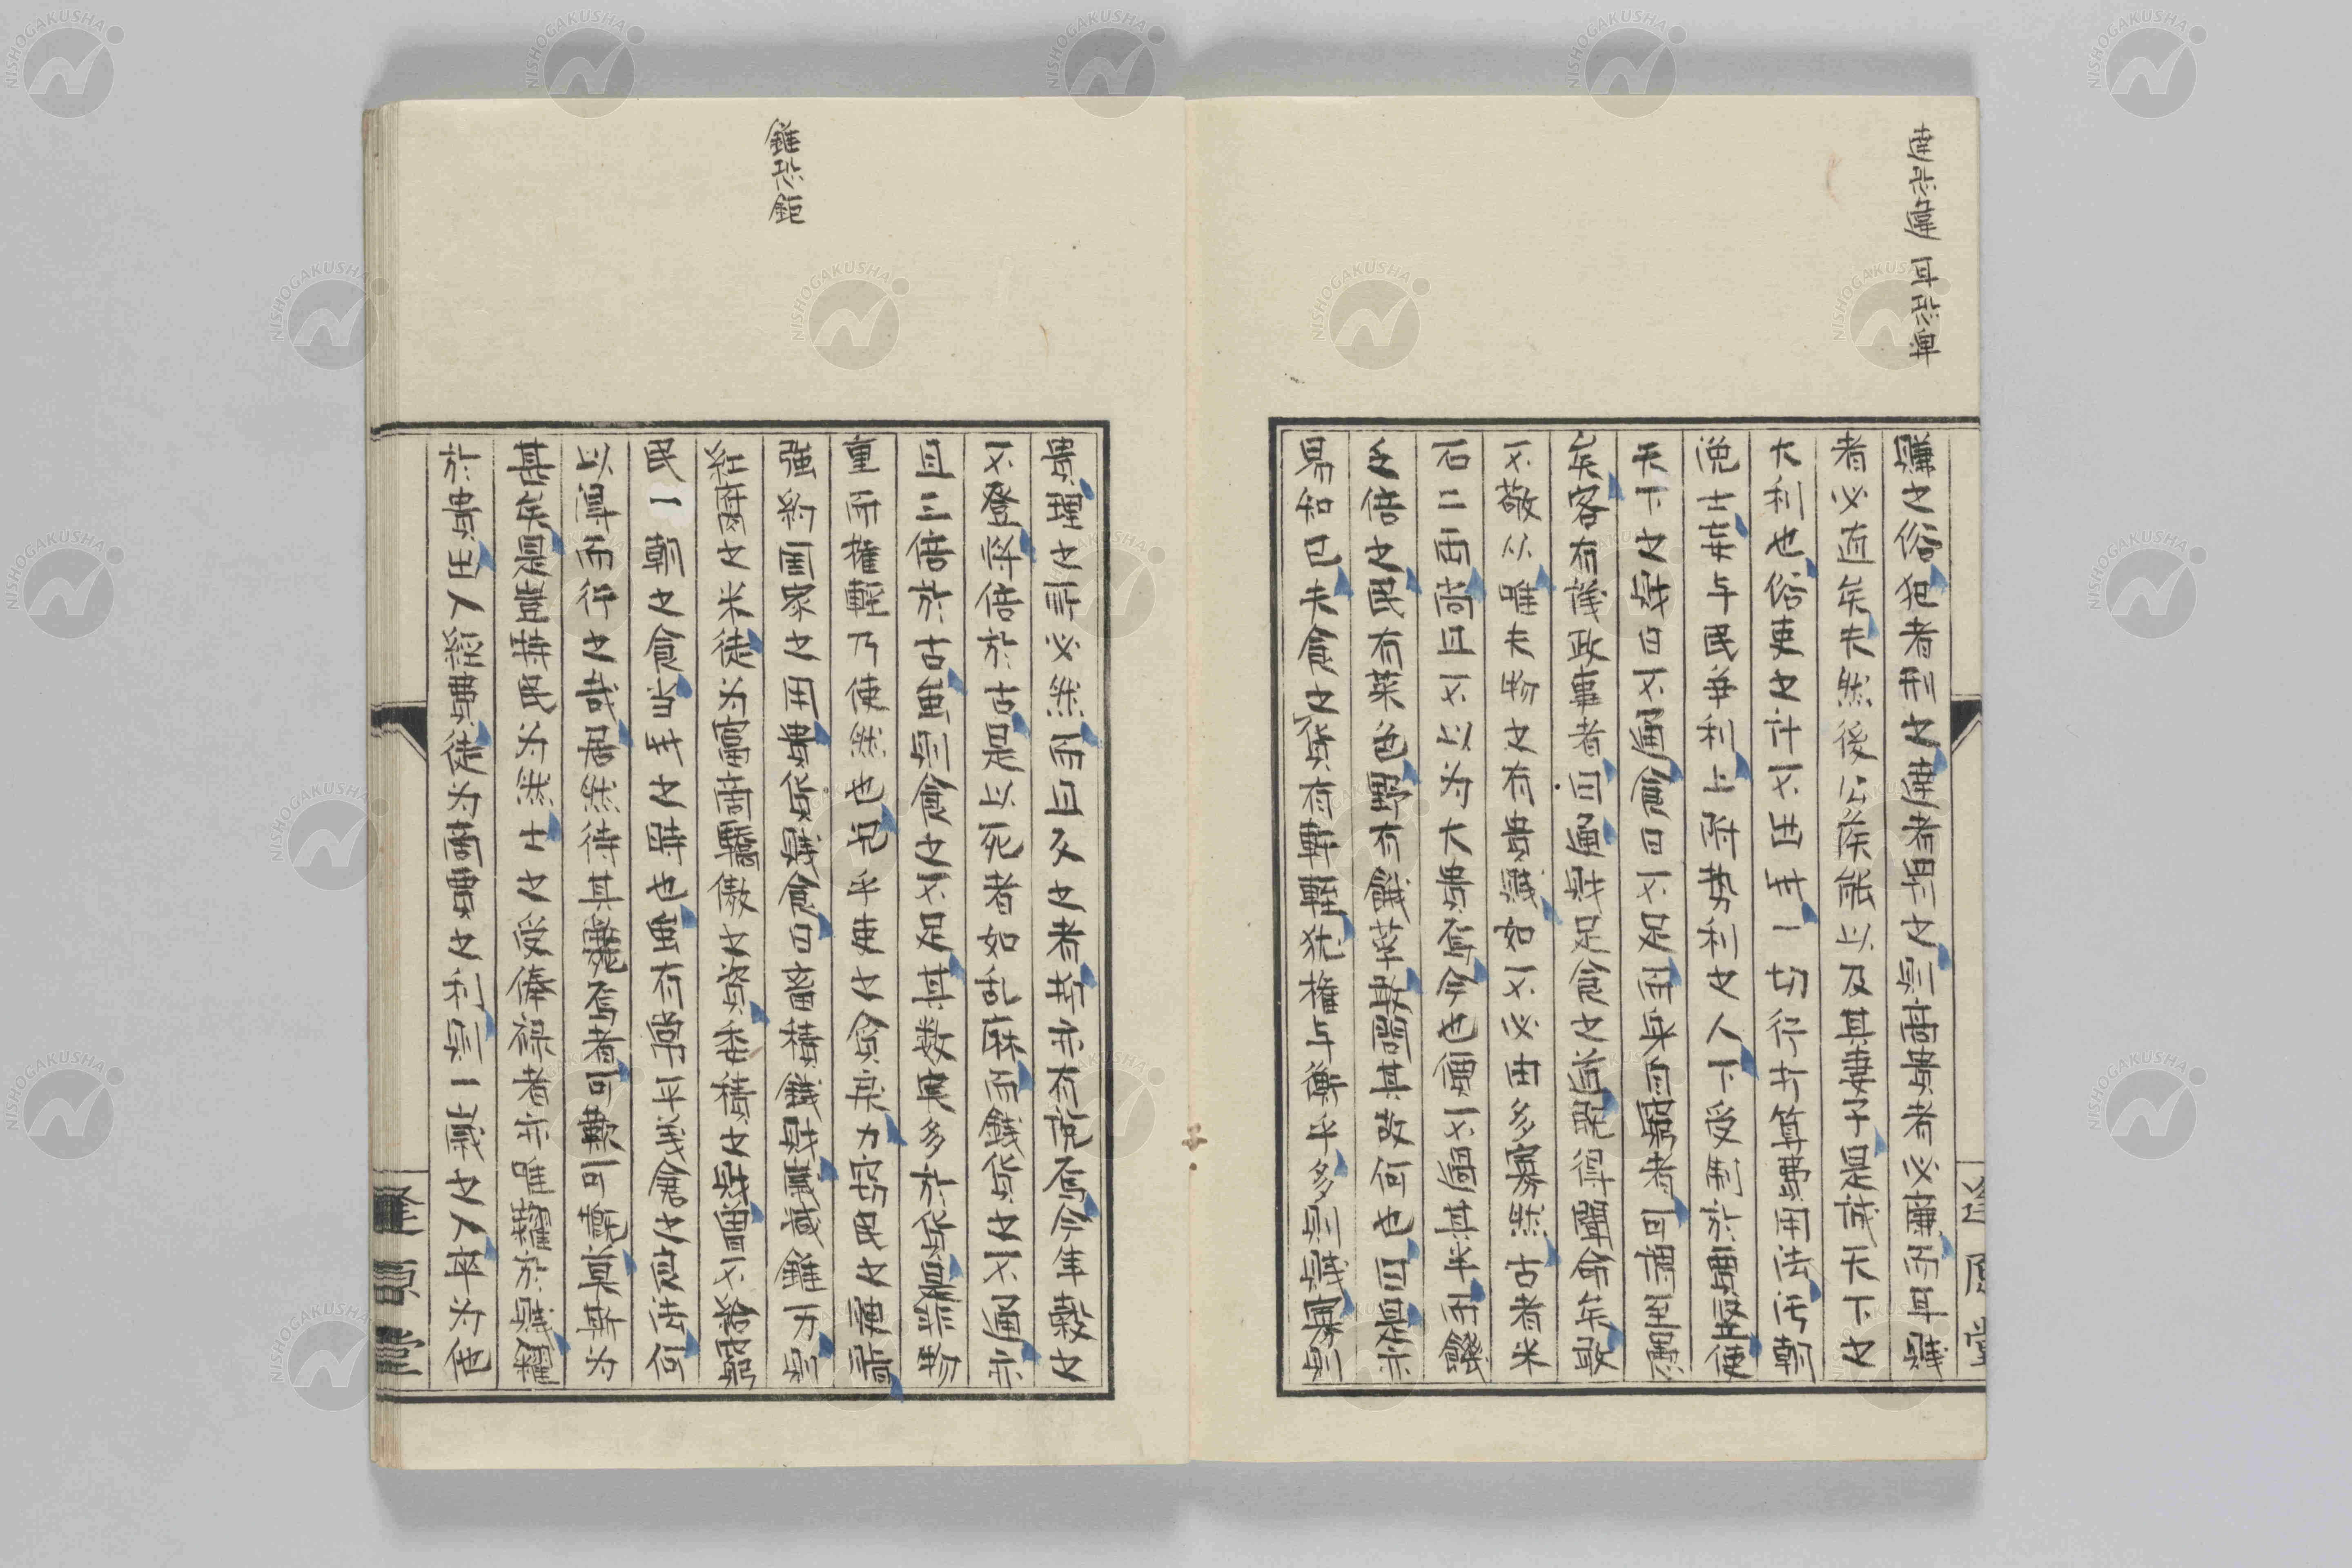 連恐違 耳恐卑
賺之俗犯者刑之連者畀之則高貴者必廉而耳賤
者必直矣夫然後公矦能以及其妻子是誠天下之
大利也俗吏之計不出于一切行打算費用法活朝
悅士妾与民争利上附勢利之人下受制於 便
天下之財日不通食日不足而身自 者可謂至愚
矣客有議政事者曰通財足食之道既得聞命矣敢
不敬從唯夫物之有貴賤如不必由多寡然古者米
石二両尚且不以为大貴奮今也價不過其半而饑
之倍之民有菜色野有餓莩 其故何也曰是亦
易知已夫食之貨有軒輊犹権与衡乎多則賤寡則
錐恐鉅
貴理之計必然而曰反之者斯亦有説焉今年穀之
不登将倍於古是以死者如乱麻而錢貨之不通亦
且三倍於古 則食之不足其数寔多於貨是非物
重而権輕乃使然也况乎吏之貪戻力窃民之 脂
強豹国家之用貴貨賤食日畜積錢財 減錐万則
紅腐之米徒为富商驕傲之資委積之財曽不救窮
民一朝之食当于之時也 有常平義倉之良法何
以得而行之哉居然待其斃焉者可歎可慨莫斯为
甚矣是豈特民为然士之受俸禄者亦唯糶於賤糴
於貴出入經費徒为商賈之利則一歳之入卒为他
逢原堂